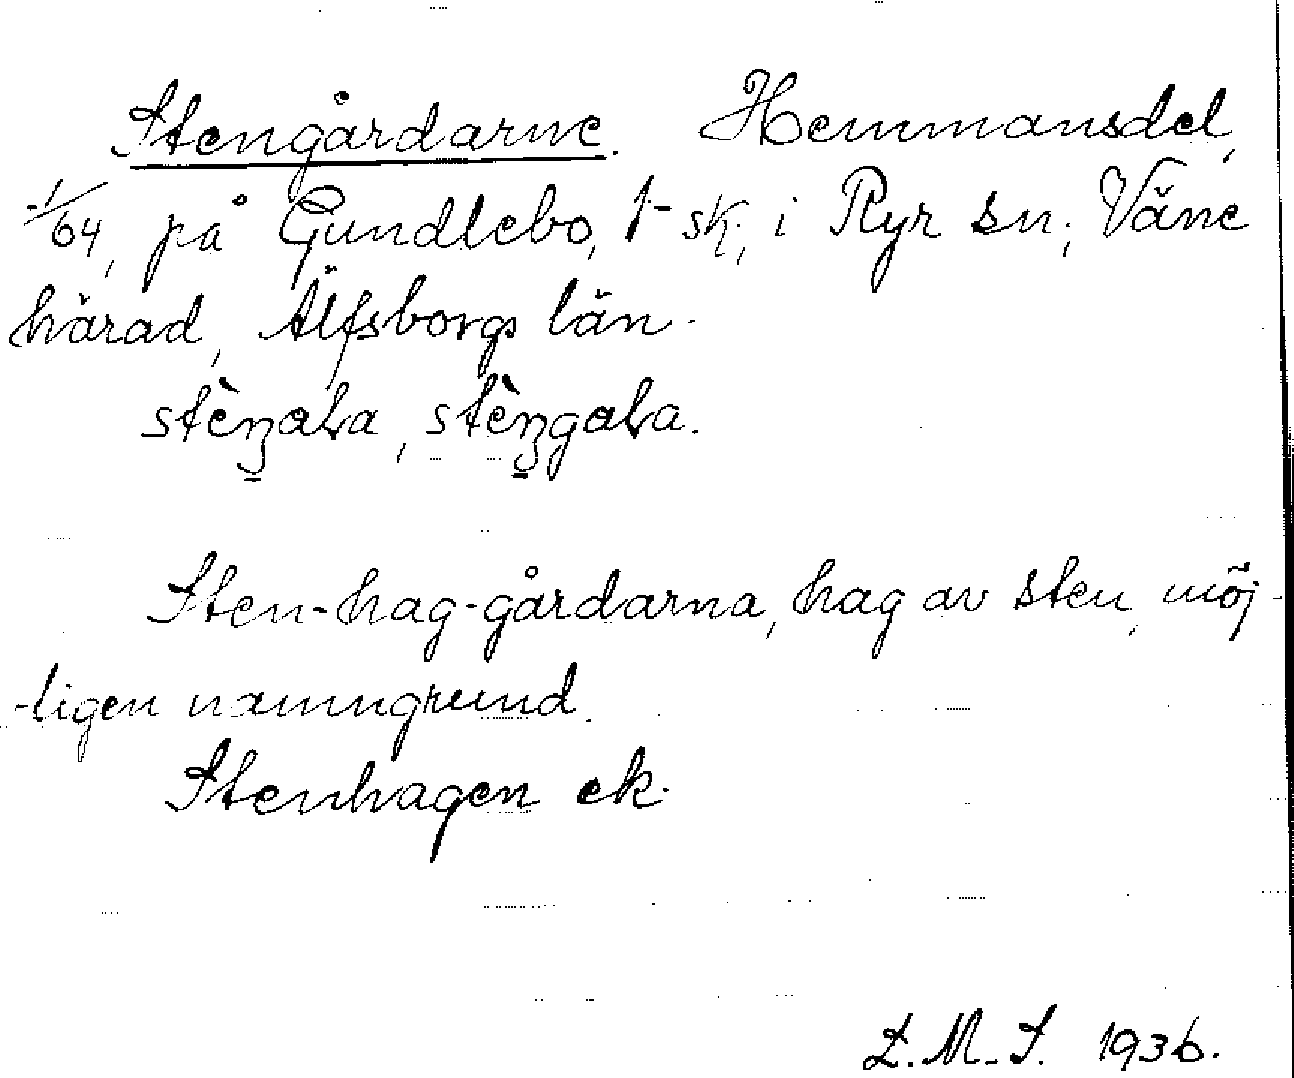 Stengårdarne. Hemmansdel,
1/64, på Gundlebo, 1 sk., i Ryr sn., Väne
härad, Älfsborgs län.
Sten-hag-gårdarna, hag av sten, möj-
ligen namngrund.
Stenhagen ek.
L.M.S. 1936.